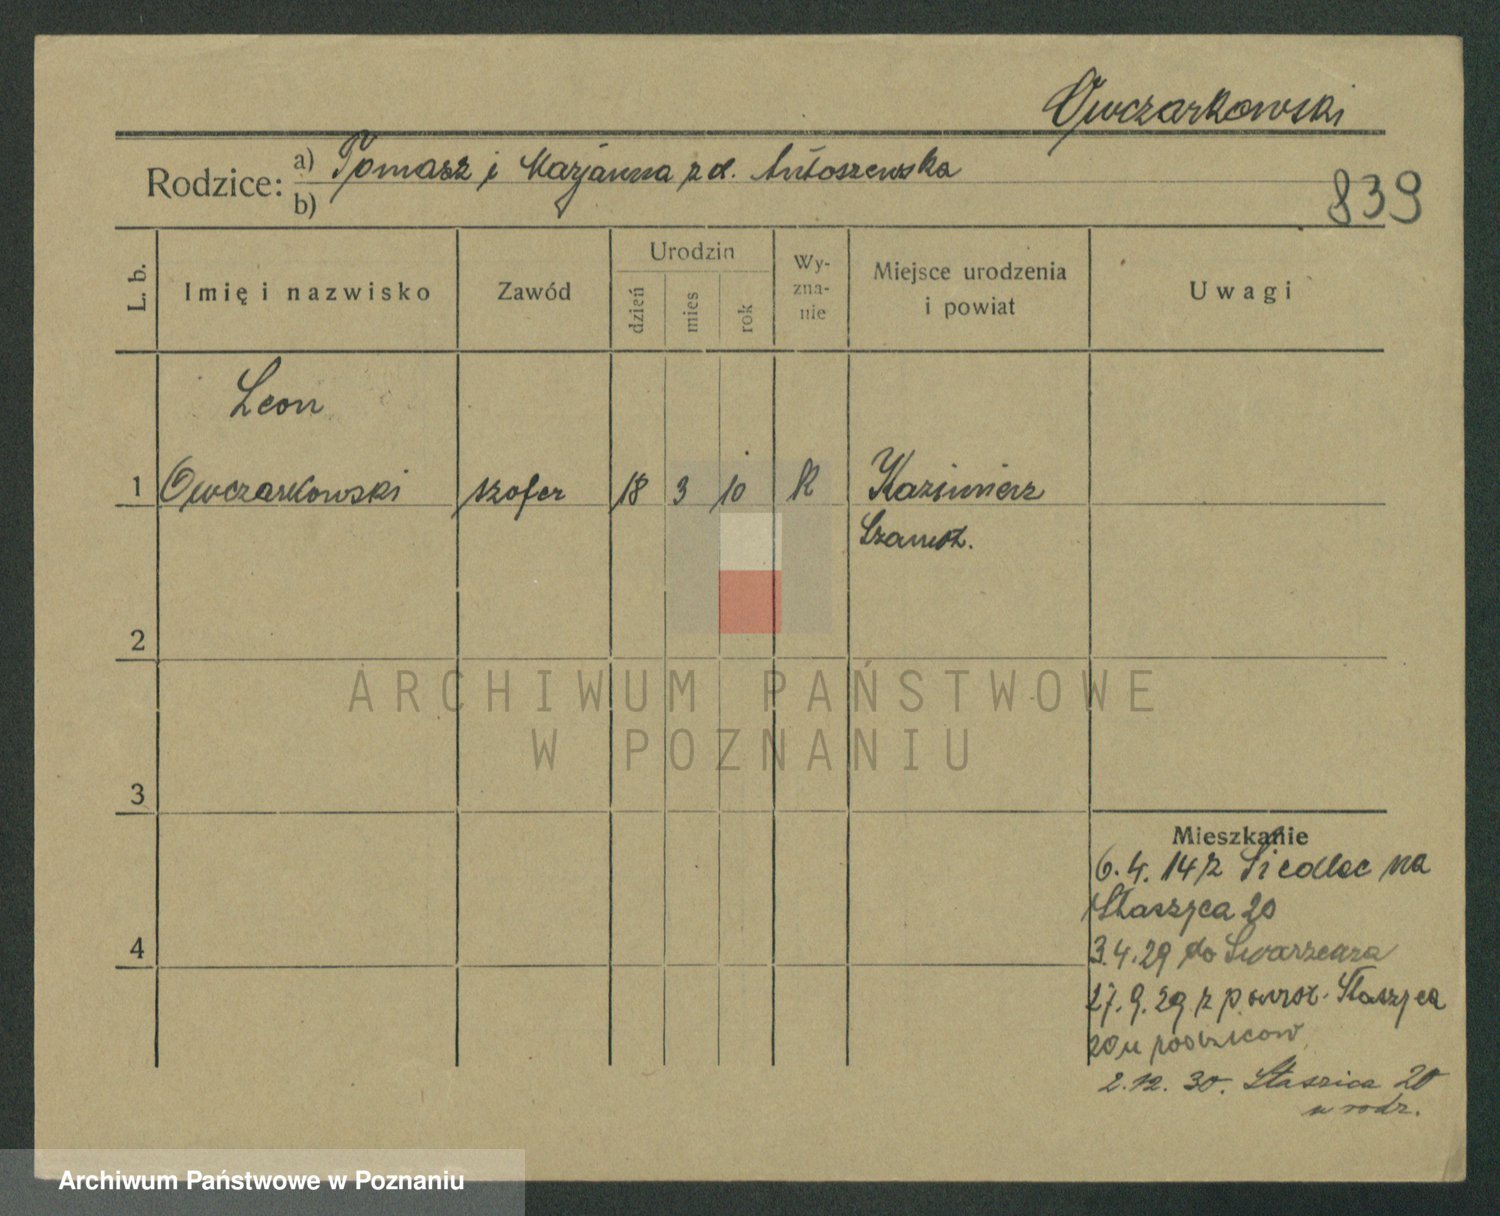 Owczarkowski
Rodzice: a) Tomasz i Marjanna z d. Antoszewska
b)
839
L. b.
Imię i nazwisko
Zawód
Urodzin
dzień
mies
rok
Wy-
zna-
nie
Miejsce urodzenia
i powiat
Uwagi
Leon
1 Owczarkowski szofer 18 3 10 R Kazimierz
Szamot.
2
3
4
ARCHIWUM PAŃSTWOWE
W POZNANIU
Mieszkanie
6.4.14 z Siedlec na
Staszyca 20
3.4.29 do Swarzędza
27.9.29 z powrot. Staszyca
20 u rodziców
2.12.30. Staszica 20
u rodz.
Archiwum Państwowe w Poznaniu